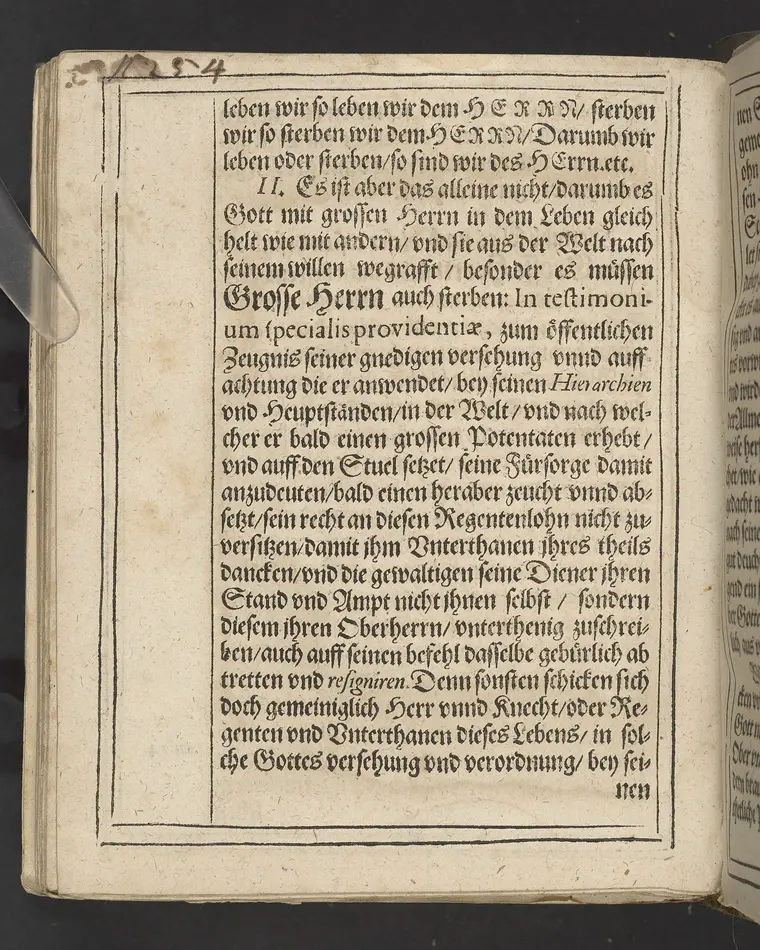 254
leben wir so leben wir dem H E R R N/ sterben
wir so sterben wir dem HERRN/Darumb wir
leben oder sterben/so sind wir des HErrn.etc.
II. Es ist aber das alleine nicht/darumb es
Gott mit grossen Herrn in dem Leben gleich
helt wie mit andern/ vnd sie aus der Welt nach
seinem willen wegrafft / besonder es müssen
Grosse Herrn auch sterben: In testimoni-
um specialis providentiæ, zum öffentlichen
Zeugnis seiner gnedigen versehung vnnd auff
achtung die er anwendet/ bey seinen Hierarchien
vnd Heuptständen/in der Welt/ vnd nach wel-
cher er bald einen grossen Potentaten erhebt/
vnd auff den Stuel setzet/ seine Fürsorge damit
anzudeuten/bald einen heraber zeucht vnnd ab-
setzt/sein recht an diesen Regentenlohn nicht zu-
versitzen/damit jhm Vnterthanen jhres theils
dancken/vnd die gewaltigen seine Diener jhren
Stand vnd Ampt nicht jhnen selbst / sondern
diesem jhren Oberherrn/ vnterthenig zuschrei-
ben/auch auff seinen befehl dasselbe gebürlich ab
tretten vnd resigniren. Denn sonsten schicken sich
doch gemeiniglich Herr vnnd Knecht/oder Re-
genten vnd Vnterthanen dieses Lebens/ in sol-
che Gottes versehung vnd verordnung/ bey sei-
nen